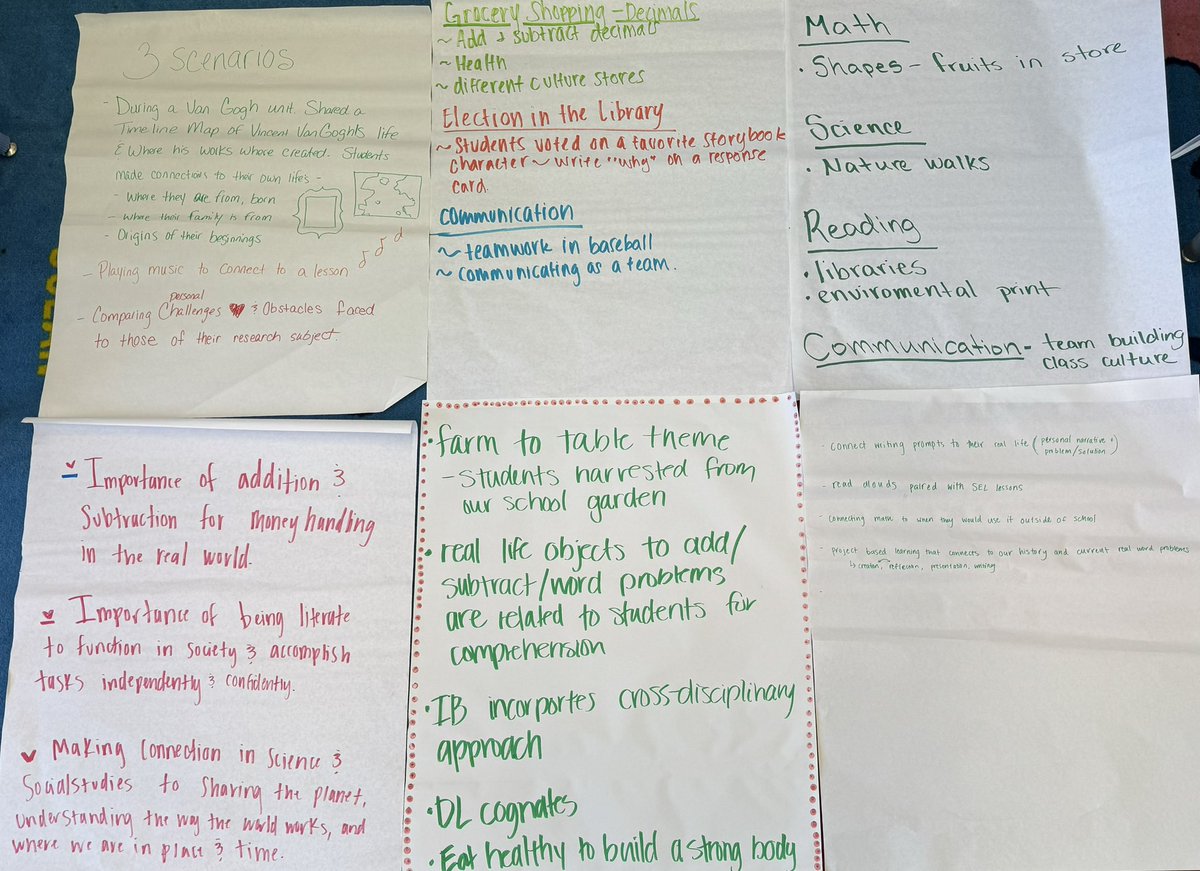 3 Scenarios
- During a Van Gogh unit. Shared a
Timeline Map of Vincent VanGogh's life
& Where his works whose created. Students
made connections to their own life's -
- Where they are from, born
- Where their family is from
- Origins of their beginnings
- Playing music to connect to a lesson
personal
- Comparing Challenges & Obstacles faced
to those of their research subject.
Grocery Shopping - Decimals
~ Add & subtract decimals
~ Health
~ different culture stores
Election in the Library
~ Students voted on a favorite storybook
character ~ write "why" on a response
card.
Communication
~ teamwork in baseball
~ communicating as a team.
Math
• Shapes - fruits in store
Science
• Nature walks
Reading
• libraries
• enviromental print
Communication - team building
class culture
Importance of addition &
Subtraction for money handling
in the real world.
Importance of being literate
to function in society & accomplish
tasks independently & confidently.
Making Connection in Science &
Socialstudies to Sharing the planet,
understanding the way the world works, and
where we are in place & time.
• farm to table theme
- students harvested from
our school garden
• real life objects to add/
subtract/word problems
are related to students for
comprehension
• IB incorportes cross-disciplinary
approach
• DL cognates
• Eat healthy to build a strong body
- connect writing prompts to their real life (personal narrative &
problem/solution)
- read alouds paired with SEL lessons
- connecting math to when they would use it outside of school
- project based learning that connects to our history and current real word problems
↳ creation, reflection, presentation, writing